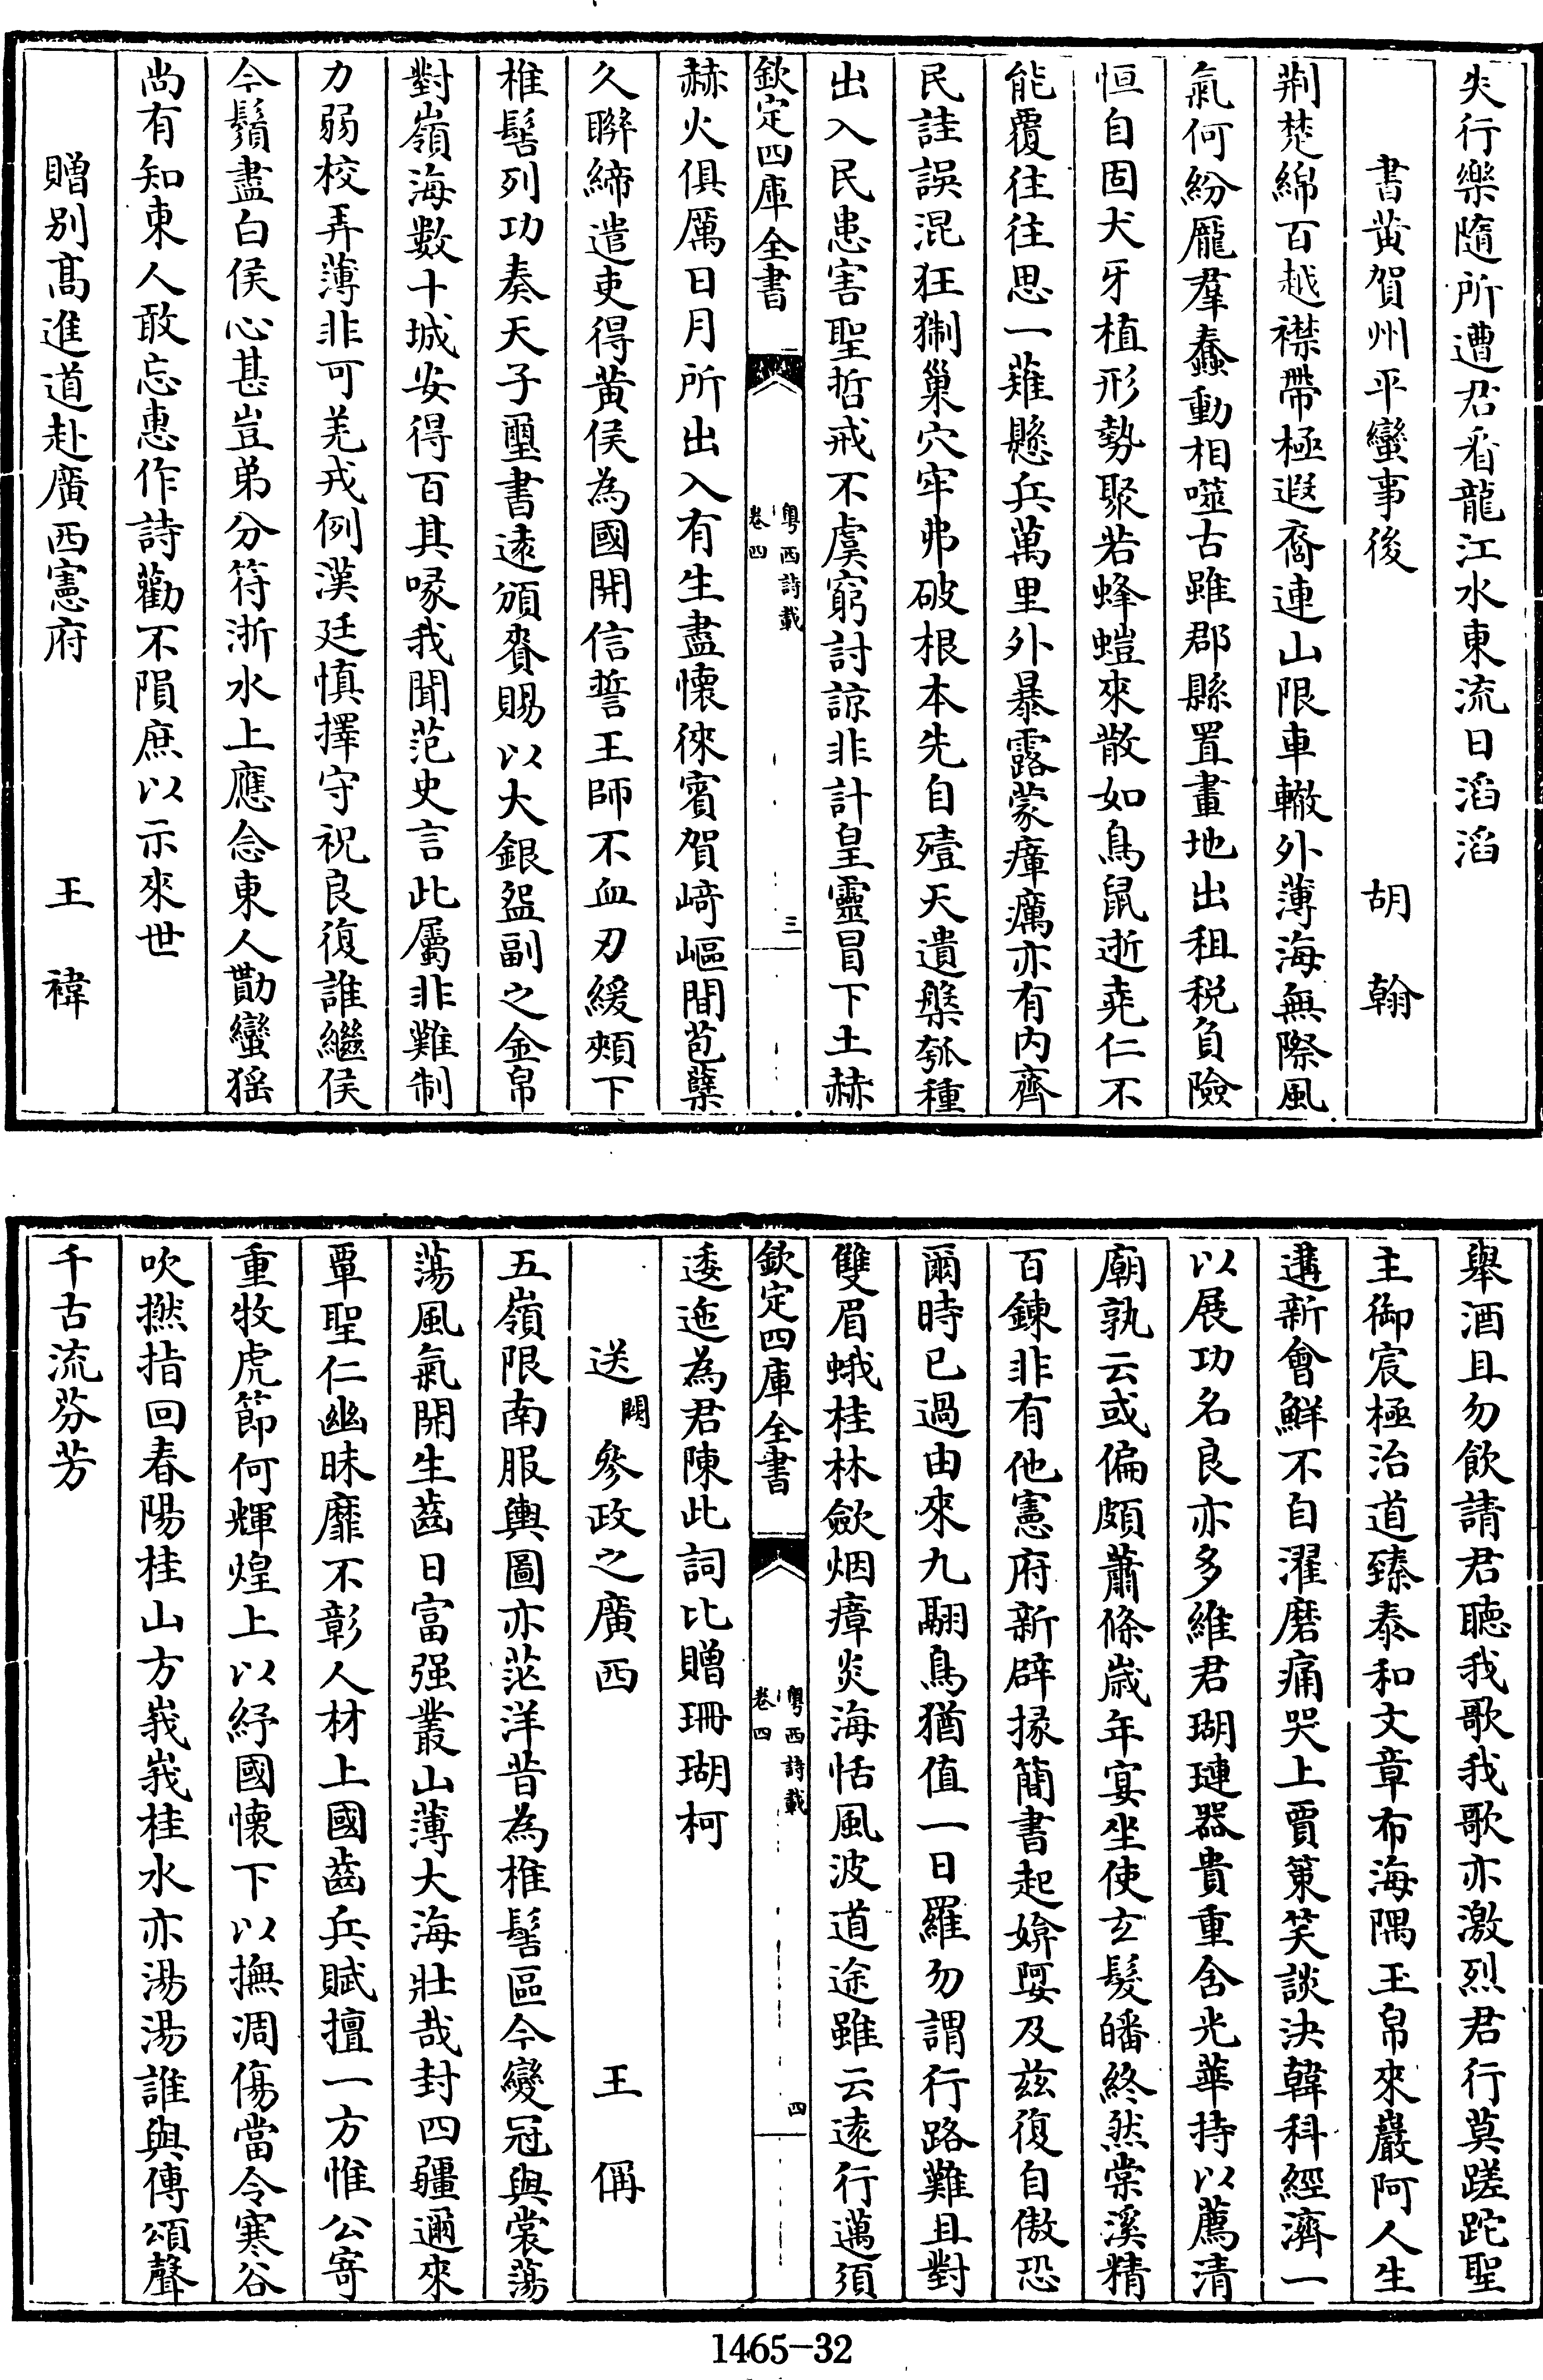 失行樂隨所遭君看龍江水東流日滔滔
書黄賀州平蠻事後　胡翰
荆楚綿百越襟帶極遐裔連山限車轍外薄海無際風
氣何紛厖羣蠢動相噬古雖郡縣置畫地出租税負險
恒自固犬牙植形勢聚若蜂螘來散如鳥鼠逝堯仁不
能覆往往思一薙懸兵萬里外暴露蒙瘴癘亦有内齊
民詿誤混狂猘巢穴牢弗破根本先自殪天遺槃瓠種
出入民患害聖哲戒不虞窮討諒非計皇靈冒下土赫
欽定四庫全書
粤西詩載
卷四
三
赫火俱厲日月所出入有生盡懷徠賓賀﨑嶇間苞櫱
久聨締遣吏得黄侯為國開信誓王師不血刃緩頰下
椎髻列功奏天子璽書逺頒賚賜以大銀盌副之金帛
對嶺海數十城安得百其喙我聞范史言此屬非難制
力弱校弄薄非可羌戎例漢廷慎擇守祝良復誰繼侯
今鬚盡白侯心甚豈弟分符浙水上應念東人勩蠻猺
尚有知東人敢忘惠作詩勸不隕庶以示來世
贈别髙進道赴廣西憲府　王禕
舉酒且勿飲請君聽我歌我歌亦激烈君行莫蹉跎聖
主御宸極治道臻泰和文章布海隅玉帛來巖阿人生
遘新會鮮不自濯磨痛哭上賈䇿笑談決韓科經濟一
以展功名良亦多維君瑚璉器貴重含光華持以薦清
廟孰云或偏頗蕭條嵗年宴坐使玄髮皤終然棠溪精
百鍊非有他憲府新辟掾簡書起媕婀及兹復自傲恐
爾時已過由來九翮鳥猶值一日羅勿謂行路難且對
雙眉蛾桂林歛烟瘴炎海恬風波道途雖云逺行邁須
欽定四庫全書
粤西詩載
卷四
四
逶迤為君陳此詞比贈珊瑚柯
送闕參政之廣西　王偁
五嶺限南服輿圖亦茫洋昔為椎髻區今變冠與裳蕩
蕩風氣開生齒日富强叢山薄大海壯哉封四疆邇來
覃聖仁幽昧靡不彰人材上國齒兵賦擅一方惟公寄
重牧虎節何輝煌上以紓國懷下以撫凋傷當令寒谷
吹撚指回春陽桂山方峩峩桂水亦湯湯誰與傳頌聲
千古流芬芳
1465-32